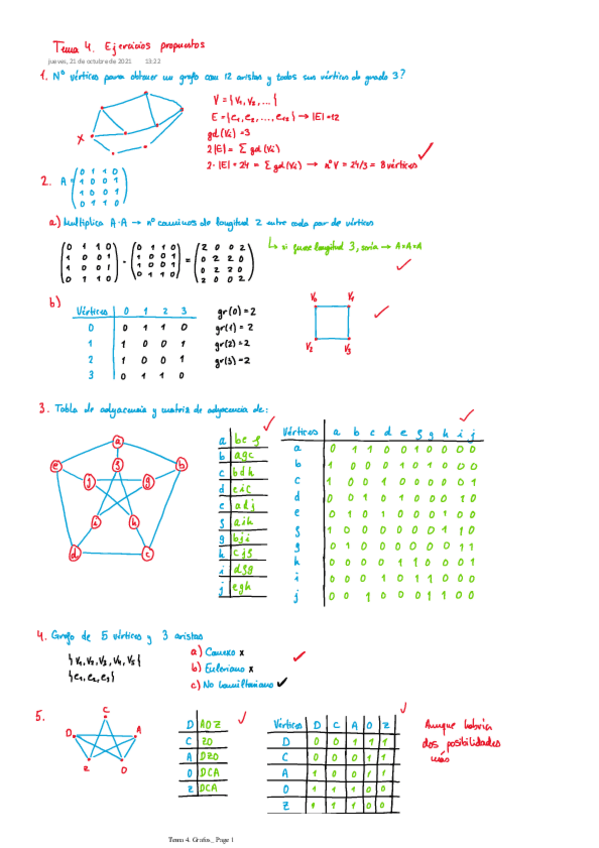 Tema 4. Ejercicios propuestos
jueves, 21 de octubre de 2021 13:22
1. Nº vértices para obtener un grafo con 12 aristas y todos sus vértices de grado 3?
V = {v1, v2, ...}
E = {e1, e2, ..., e12} → |E| = 12
gd(Vi) = 3
2|E| = Σ gd(Vi)
2·|E| = 24 = Σ gd(Vi) → nº V = 24/3 = 8 vértices
X
2. A =
0 1 1 0
1 0 0 1
1 0 0 1
0 1 1 0
a) Multiplica A·A → nº caminos de longitud 2 entre cada par de vértices
0 1 1 0 0 1 1 0 2 0 0 2
1 0 0 1 · 1 0 0 1 = 0 2 2 0
1 0 0 1 1 0 0 1 0 2 2 0
0 1 1 0 0 1 1 0 2 0 0 2
↳ si fuese longitud 3, sería → A·A·A
b)
Vértices 0 1 2 3
0 0 1 1 0
1 1 0 0 1
2 1 0 0 1
3 0 1 1 0
gr(0) = 2
gr(1) = 2
gr(2) = 2
gr(3) = 2
V0 V1
V2 V3
3. Tabla de adyacencia y matriz de adyacencia de:
a
e f b
j g
i h
d c
a be f
b agc
c bdh
d eic
e adj
f aih
g bji
h cjf
i dfg
j egh
Vértices a b c d e f g h i j
a 0 1 1 0 0 1 0 0 0 0
b 1 0 0 0 1 0 1 0 0 0
c 1 0 0 1 0 0 0 0 0 1
d 0 0 1 0 1 0 0 0 1 0
e 0 1 0 1 0 0 0 1 0 0
f 1 0 0 0 0 0 0 1 1 0
g 0 1 0 0 0 0 0 0 1 1
h 0 0 0 0 1 1 0 0 0 1
i 0 0 0 1 0 1 1 0 0 0
j 0 0 1 0 0 0 1 1 0 0
4. Grafo de 5 vértices y 3 aristas
{e1, e2, e3}
a) Conexo x
b) Euleriano x
c) No hamiltoniano ✓
5.
C
D A
Z O
D AOZ
C ZO
A DZO
O DCA
Z DCA
Vértices D C A O Z
D 0 0 1 1 1
C 0 0 0 1 1
A 1 0 0 1 1
O 1 1 1 0 0
Z 1 1 1 0 0
Aunque habría
dos posibilidades
más
Tema 4. Grafos_ Page 1